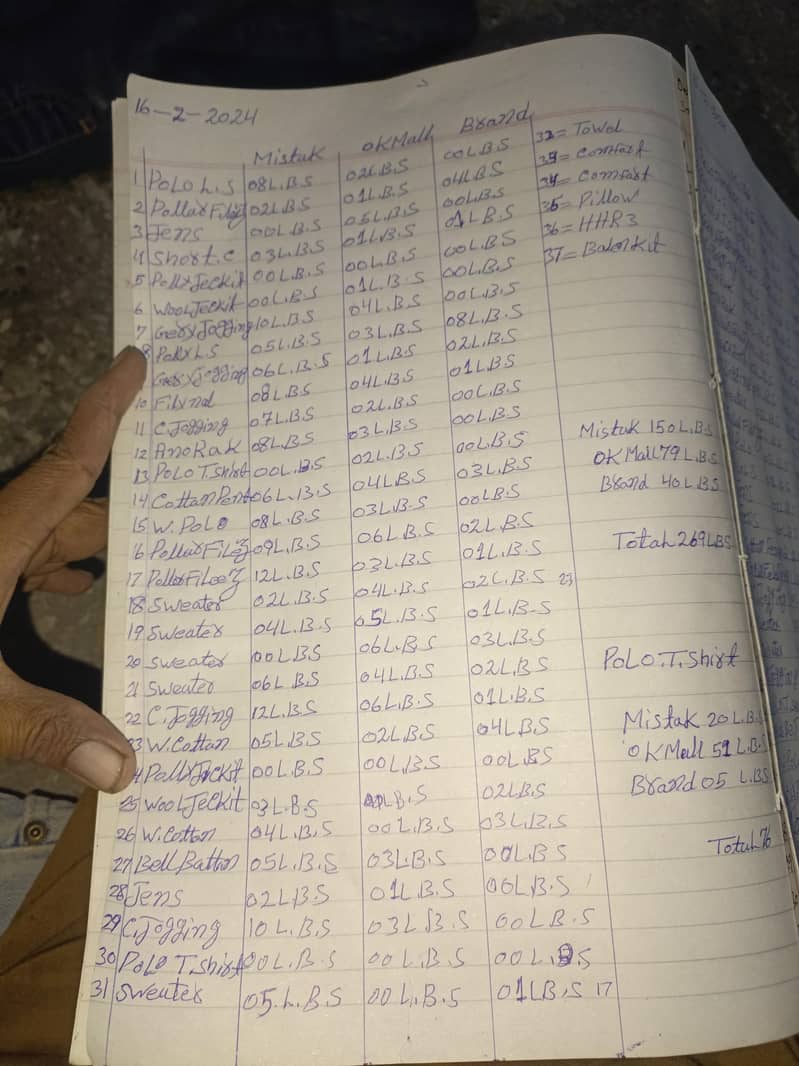 16-2-2024
Mistak OKMall Brand
1 POLO L.S 08L.B.S 02L.B.S 00L.B.S 32= Towel
2 02L.B.S 01L.B.S 04L.B.S 33= Comfort
3 Jens 00L.B.S 05L.B.S 00L.B.S 34= Comfort
4 Short.c 03L.B.S 01L.B.S 01L.B.S 35= Pillow
5 PollyJeckit 00L.B.S 00L.B.S 00L.B.S 36= HHR3
6 WoolJeckit 00L.B.S 01L.B.S 00L.B.S 37=
7 Jogging 10L.B.S 04L.B.S 00L.B.S
8 05L.B.S 03L.B.S 08L.B.S
Jogging 06L.B.S 01L.B.S 02L.B.S
10 08L.B.S 04L.B.S 01L.B.S
11 C.Jogging 07L.B.S 02L.B.S 00L.B.S
12 AnoRak 08L.B.S 03L.B.S 00L.B.S Mistak 150L.B.S
13 POLO T.Shirt 00L.B.S 02L.B.S 00L.B.S OK Mall 79 L.B.S
14 CottanPent 06L.B.S 04L.B.S 03L.B.S Brand 40 L.B.S
15 W.Polo 08L.B.S 03L.B.S 00L.B.S
16 09L.B.S 06L.B.S 02L.B.S Total 269LBS
17 12L.B.S 03L.B.S 01L.B.S
18 Sweater 02L.B.S 04L.B.S 02L.B.S 23
19 Sweater 04L.B.S 05L.B.S 01L.B.S
20 Sweater 00L.B.S 06L.B.S 03L.B.S
21 Sweater 06L.B.S 04L.B.S 02L.B.S POLO.T.Shirt
22 C.Jogging 12L.B.S 06L.B.S 01L.B.S
23 W.Cottan 05L.B.S 02L.B.S 04L.B.S Mistak 20 L.B.S
4 PollyJeckit 00L.B.S 00L.B.S 00L.B.S OKMall 51 L.B.S
25 WoolJeckit 03L.B.S L.B.S 02L.B.S Brand 05 L.B.S
26 W.Cotton 04L.B.S 00L.B.S 03L.B.S
27 Bell Batton 05L.B.S 03L.B.S 00L.B.S Total 76
28 Jens 02L.B.S 01L.B.S 06L.B.S
29 C.Jogging 10L.B.S 03L.B.S 00L.B.S
30 POLO T.Shirt 00L.B.S 00L.B.S 00L.B.S
31 Sweater 05.L.B.S 00L.B.S 01L.B.S 17